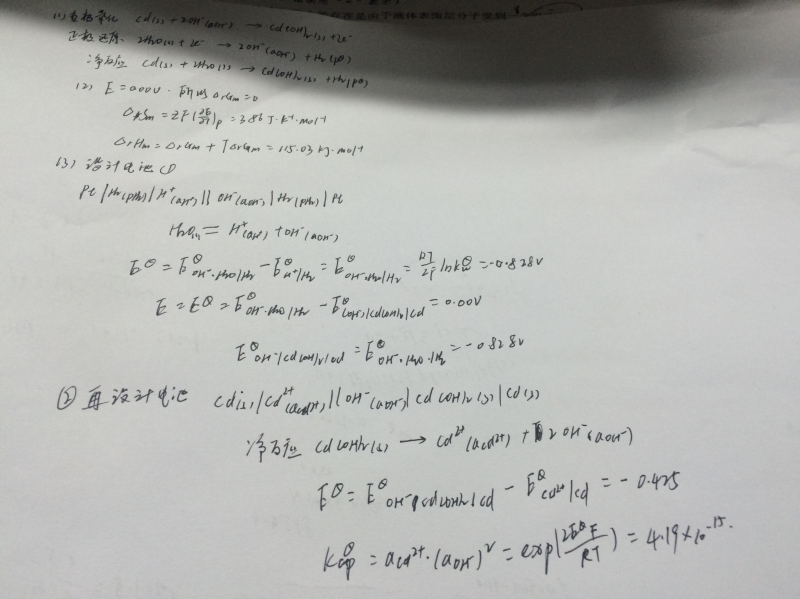 (1) 负极氧化 Cd(s) + 2OH⁻(aOH⁻) → Cd(OH)₂(s) + 2e⁻
正极还原 2H₂O(l) + 2e⁻ → 2OH⁻(aOH⁻) + H₂(pθ)
净反应 Cd(s) + 2H₂O(l) → Cd(OH)₂(s) + H₂(pθ)
(2) E = 0.00V. 所以 ΔrGm = 0
ΔrSm = ZF(∂E/∂T)p = 386 J·K⁻¹·mol⁻¹
ΔrHm = ΔrGm + TΔrGm = 115.03 kJ·mol⁻¹
(3) 设计电池 ①
Pt | H₂(pH₂) | H⁺(aH⁺) || OH⁻(aOH⁻) | H₂(pH₂) | Pt
H₂O(l) = H⁺(aH⁺) + OH⁻(aOH⁻)
Eθ = Eθ OH⁻·H₂O/H₂ − Eθ H⁺/H₂ = Eθ OH⁻·H₂O/H₂ = RT/ZF ln Kwθ = −0.828V
E = Eθ = Eθ OH⁻·H₂O/H₂ − Eθ OH⁻/Cd(OH)₂/Cd = 0.00V
Eθ OH⁻/Cd(OH)₂/Cd = Eθ OH⁻·H₂O·/H₂ = −0.828V
② 再设计电池 Cd(s) | Cd²⁺(aCd²⁺) || OH⁻(aOH⁻) | Cd(OH)₂(s) | Cd(s)
净反应 Cd(OH)₂(s) → Cd²⁺(aCd²⁺) + 2OH⁻(aOH⁻)
Eθ = Eθ OH⁻/Cd(OH)₂/Cd − Eθ Cd²⁺/Cd = −0.425
Kθap = aCd²⁺·(aOH⁻)² = exp(2EθF/RT) = 4.19×10⁻¹⁵.